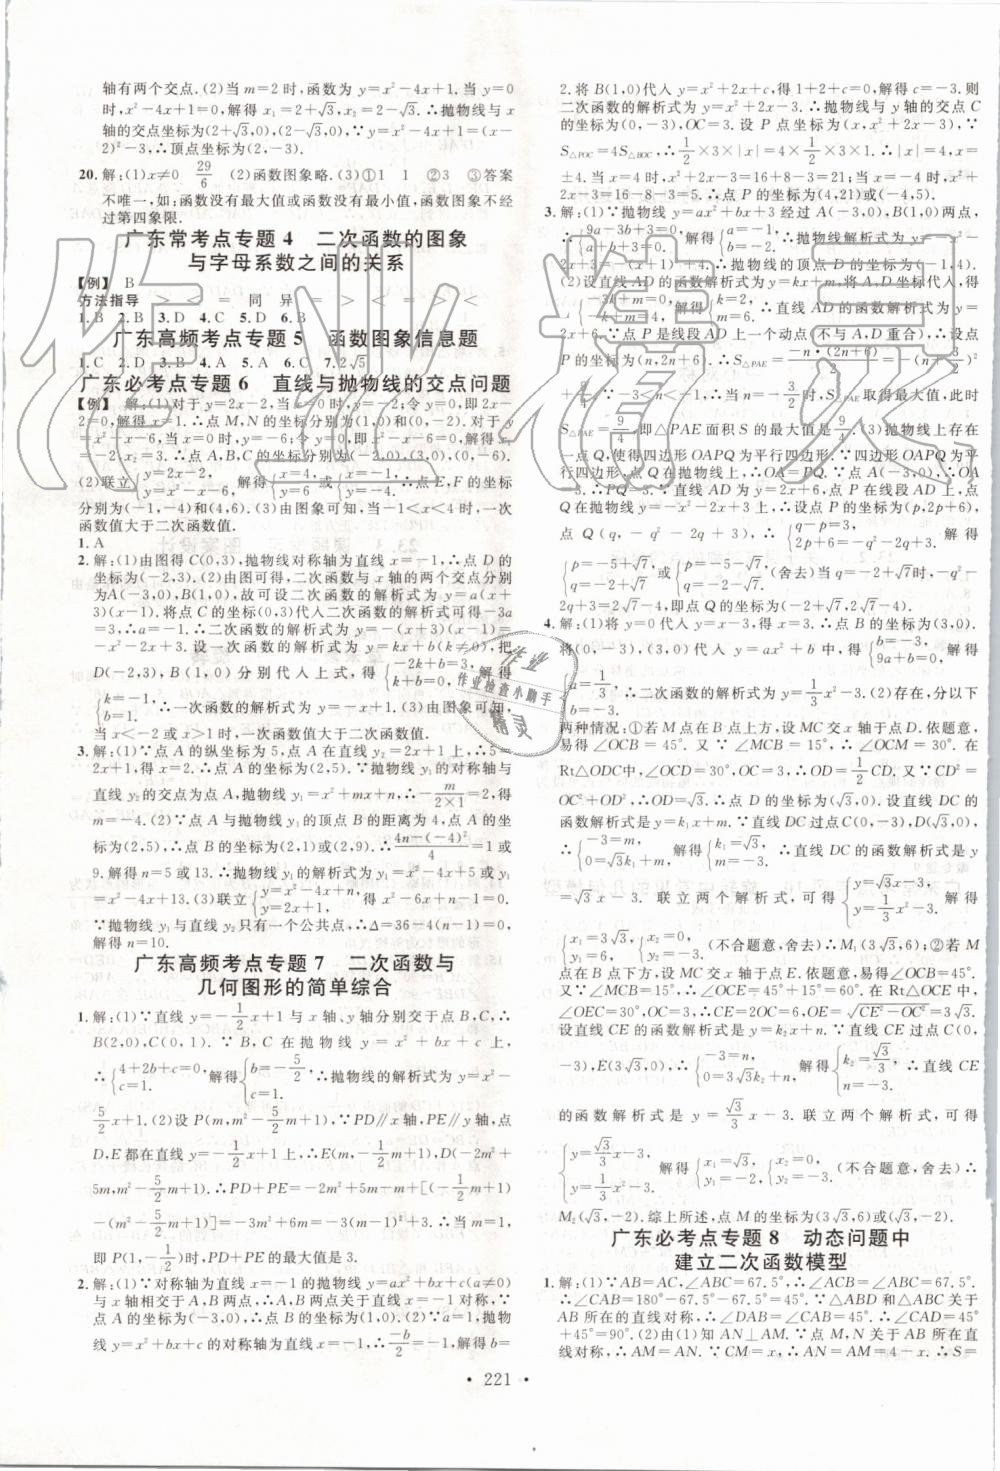 轴有两个交点.(2)当 m=2 时,函数为 y=x²-4x+1.当 y=0
时,x²-4x+1=0,解得 x₁=2+√3,x₂=2-√3.∴抛物线与 x
轴的交点坐标为(2+√3,0),(2-√3,0).∵y=x²-4x+1=(x-
2)²-3,∴顶点坐标为(2,-3).
20.解:(1)x≠0 29/6 (2)函数图象略.(3)①1 1 ②3 ③答案
不唯一,如:函数没有最大值或函数没有最小值,函数图象不经
过第四象限.
广东常考点专题 4 二次函数的图象
与字母系数之间的关系
【例】 B
方法指导 > < = 同 异 = > < = > <
1.B 2.B 3.D 4.C 5.D 6.B
广东高频考点专题 5 函数图象信息题
1.C 2.D 3.B 4.A 5.A 6.C 7.2√5
广东必考点专题 6 直线与抛物线的交点问题
【例】 解:(1)对于 y=2x-2,当 x=0 时,y=-2;令 y=0,即 2x-
2=0,解得 x=1.∴点 M,N 的坐标分别为(1,0),(0,-2).对于 y
=x²-x-6,当 x=0 时,y=-6;令 y=0,即 x²-x-6=0,解得 x₁
=-2,x₂=3.∴点 A,B,C 的坐标分别为(-2,0),(3,0),(0,-6).
(2)联立{y=2x-2, y=x²-x-6.解得{x=4, y=6或{x=-1, y=-4.∴点 E,F 的坐标
分别为(-1,-4)和(4,6).(3)由图象可知,当-1<x<4 时,一次
函数值大于二次函数值.
1.A
2.解:(1)由图得,抛物线对称轴为直线 x=-1,∴点 D 的
坐标为(-2,3).(2)由图可得,二次函数与 x 轴的两个交点分别
为A(-3,0),B(1,0),故可设二次函数的解析式为 y=a(x+
3)(x-1).将点 C 的坐标(0,3)代入二次函数的解析式可得-3a
=3,∴a=-1.∴二次函数的解析式为 y=-(x+3)(x-1)=
-x²-2x+3.(3)设一次函数的解析式为 y=kx+b(k≠0),把
D(-2,3),B(1,0)分别代入上式,得{-2k+b=3, k+b=0.解得
{k=-1, b=1.∴一次函数的解析式为 y=-x+1.(4)由图象可知,
当 x<-2 或 x>1 时,一次函数值大于二次函数值.
3.解:(1)∵点 A 的纵坐标为 5,点 A 在直线 y₂=2x+1 上,∴5=
2x+1.解得 x=2.∴点 A 的坐标为(2,5).∵抛物线 y₁的对称轴与
直线 y₂的交点为点 A,抛物线 y₁=x²+mx+n,∴-m/(2×1)=2,得
m=-4.(2)∵点 A 与抛物线 y₁的顶点 B 的距离为 4,点 A 的坐标
为(2,5),∴点 B 的坐标为(2,1)或(2,9).∴(4n-(-4)²)/4=1 或
9.解得 n=5 或 13.(3)联立{y=x²-4x+n, y=2x+1.得 x²-6x+n-1=0.
∵抛物线 y₁与直线 y₂只有一个公共点,∴Δ=36-4(n-1)=0.
解得 n=10.
广东高频考点专题 7 二次函数与
几何图形的简单综合
1.解:(1)∵直线 y=-1/2x+1 与 x 轴、y 轴分别交于点 B,C,∴
B(2,0),C(0,1).∵B,C 在抛物线 y=x²+bx+c 上,
∴{4+2b+c=0, c=1.解得{b=-5/2, c=1.∴抛物线的解析式为 y=x²-
5/2x+1.(2)设 P(m,m²-5/2m+1),∵PD∥x 轴,PE∥y 轴,点
D,E 都在直线 y=-1/2x+1 上.∴E(m,-1/2m+1),D(-2m²+
5m,m²-5/2m+1).∴PD+PE=-2m²+5m-m+[(-1/2m+1)
-(m²-5/2m+1)]=-3m²+6m=-3(m-1)²+3.∴当 m=1,
即 P(1,-1/2)时,PD+PE 的最大值是 3.
2.解:(1)∵对称轴为直线 x=-1 的抛物线 y=ax²+bx+c(a≠0)
与 x 轴相交于 A,B 两点,∴A,B 两点关于直线 x=-1 对称,∵
点 A 的坐标为(-3,0),∴点 B 的坐标为(1,0).(2)a=1,∵抛物
线 y=x²+bx+c 的对称轴为直线 x=-1,∴-b/2=-1,解得 b=
2.将 B(1,0)代入 y=x²+2x+c,得 1+2+c=0,解得 c=-3.则
二次函数的解析式为 y=x²+2x-3.∴抛物线与 y 轴的交点 C
的坐标为(0,-3).设 P 点坐标为(x,x²+2x-3),∵
S△POC=4S△BOC,∴1/2×3×|x|=4×1/2×3×1.∴|x|=4,x=
±4.当 x=4 时,x²+2x-3=16+8-3=21;当 x=-4 时,x²+
2x-3=16-8-3=5.∴点 P 的坐标为(4,21)或(-4,5).
3.解:(1)∵抛物线 y=ax²+bx+3 经过点 A,B(1,0)两点,
∴{9a-3b+3=0, a+b+3=0.解得{a=-1, b=-2.∴抛物线解析式为 y=-x²-
2x+3=-(x+1)²+4.∴抛物线的顶点坐标为(-1,4).
(2)设直线 AD 的解析式为 y=kx+m,将 A,D 坐标代入,得
{-3k+m=0, -k+m=4.解得{k=2, m=6.∴直线 AD 的函数解析式为 y=2x
+6.∵点 P 是线段 AD 上一个动点(不与 A,D 重合),∴设点
P 坐标为(n,2n+6).∴S△PAE=(-n·(2n+6))/2=-(n+3/2)²
+9/4.∵-3<n<-1,∴当 n=-3/2时,S△PAE取最大值,此时
S△PAE=9/4,即△PAE 面积 S 的最大值是9/4.(3)抛物线上存在
一点 Q,使得四边形 OAPQ 为平行四边形.∵四边形 OAPQ 为平
行四边形,点 Q 在抛物线上,∴OA∥PQ.∵点 A(-3,0),∴OA=
3.∴PQ=3.∵直线 AD 为 y=2x+6,点 P 在线段 AD 上,点
Q 在抛物线 y=-x²-2x+3 上,∴设点 P 的坐标为(p,2p+6),
点 Q(q,-q²-2q+3).∴{q-p=3, 2p+6=-q²-2q+3.解得
{p=-5+√7, q=-2+√7或{p=-5-√7, q=-2-√7(舍去)当 q=-2+√7时,-q²-
2q+3=2√7-4,即点 Q 的坐标为(-2+√7,2√7-4).
4.解:(1)将 y=0 代入 y=x-3,得 x=3,∴点 B 的坐标为
(3,0).将(0,-3),(3,0)代入 y=ax²+b 中,得{b=-3, 9a+b=0.解得
{a=1/3, b=-3.∴二次函数的解析式为 y=1/3x²-3.(2)存在,分以下
两种情况:①若 M 点在 B 点上方,设 MC 交 x 轴于点 D.依题意,
易得∠OCB=45°.又∵∠MCB=15°,∴∠OCM=30°.在
Rt△ODC中,∠OCD=30°,OC=3,∴OD=1/2CD.又∵CD²=
OC²+OD²,∴OD=√3.∴点 D 的坐标为(√3,0).设直线 DC 的
函数解析式是 y=k₁x+m.∵直线 DC 过点C(0,-3),D(√3,0),
∴{-3=m, 0=√3k₁+m.解得{k₁=√3, m=-3.∴直线 DC 的函数解析式是 y
=√3x-3.联立两个函数解析式,可得{y=√3x-3, y=1/3x²-3.解得
{x₁=0, y₁=-3,{x₂=3√3, y₂=6.(不合题意,舍去)∴M₁(3√3,6);②若M点
在 B 点下方,设 MC 交 x 轴于点E.依题意,易得∠OCB=45°.
又∵∠MCB=15°,∴∠OCE=45°+15°=60°.在 Rt△OCE中,
∠OEC=30°,OC=3,∴CE=2OC=6,OE=√(CE²-OC²)=3√3.
设直线 CE 的函数解析式是 y=k₂x+n.∵直线 CE 过点 C(0,
-3),E(3√3,0),∴{-3=n, 0=3√3k₂+n.解得{k₂=√3/3, n=-3.∴直线 CE
的函数解析式是 y=√3/3x-3.联立两个解析式,可得
{y=√3/3x-3, y=1/3x²-3.解得{x₁=√3, y₁=-2,{x₂=0, y₂=-3.(不合题意,舍去)∴
M₂(√3,-2).综上所述,点 M 的坐标为(3√3,6)或(√3,-2).
广东必考点专题 8 动态问题中
建立二次函数模型
1.解:(1)∵AB=AC,∠ABC=67.5°,∴∠ACB=∠ABC=67.5°.
∴∠CAB=180°-67.5°-67.5°=45°.∵△ABD 和△ABC 关于
AB 所在的直线对称,∴∠BAD=∠CAB=45°.∴∠CAD=45°
+45°=90°.(2)由(1)知 AN⊥AM.∵点 M,N 关于 AB 所在的直
线对称,∴AM=AN.∵CM=x,∴AN=AM=4-x.∴S=
• 221 •